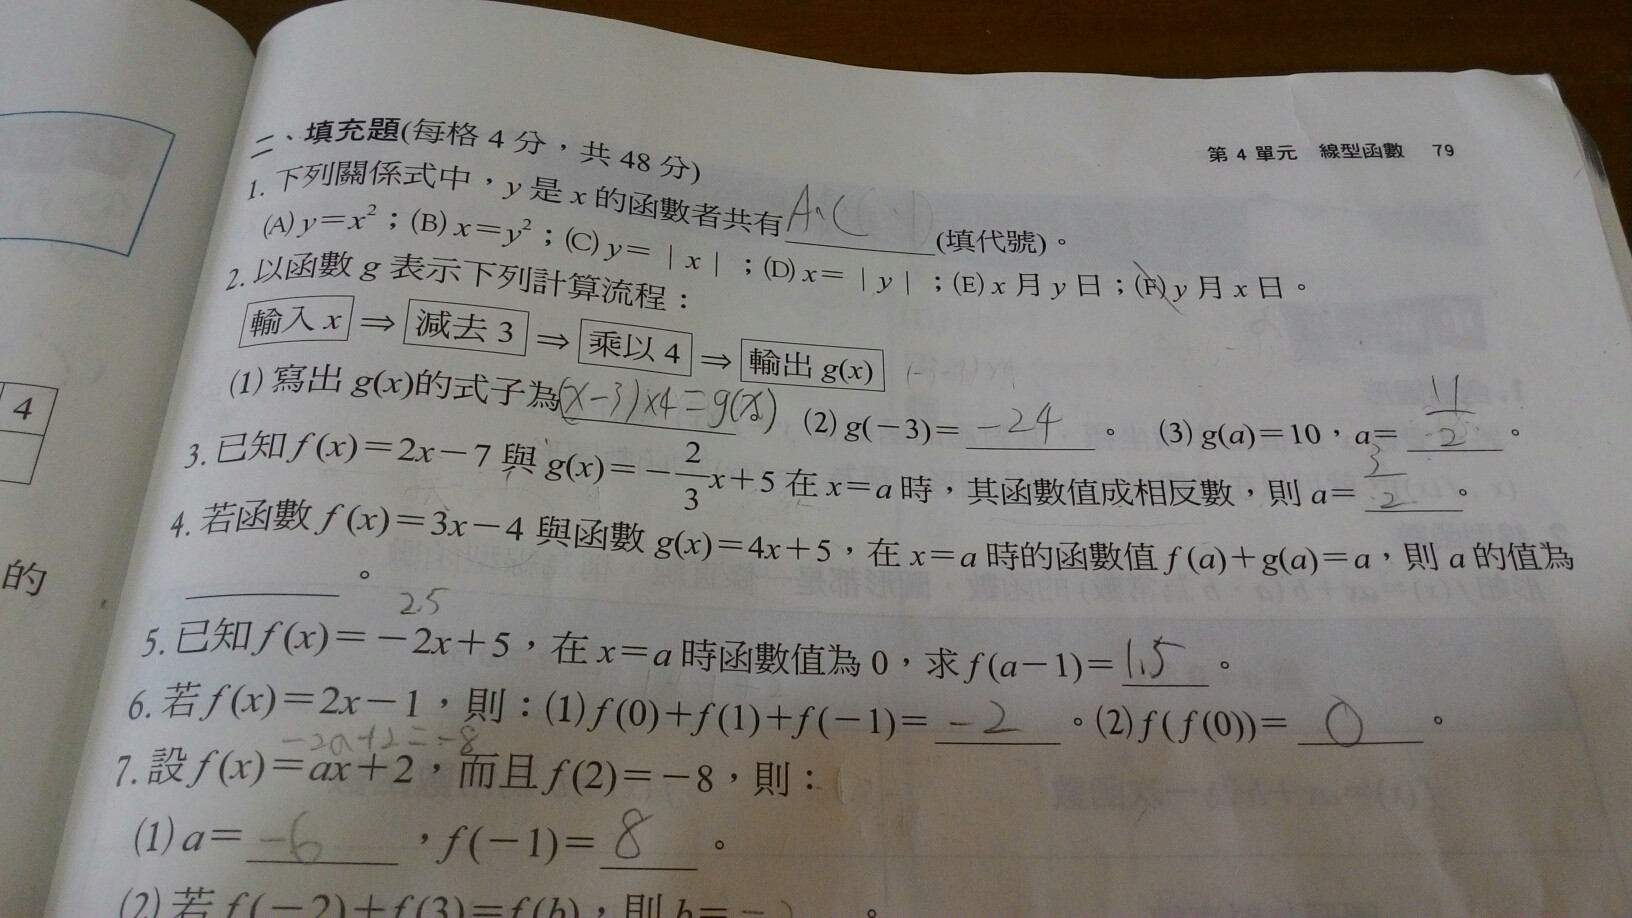 第 4 單元 線型函數 79
二、填充題(每格 4 分，共 48 分)
1. 下列關係式中，y 是 x 的函數者共有 A、C (填代號)。
(A) y＝x²；(B) x＝y²；(C) y＝｜x｜；(D) x＝｜y｜；(E) x 月 y 日；(F) y 月 x 日。
2. 以函數 g 表示下列計算流程：
輸入 x ⇒ 減去 3 ⇒ 乘以 4 ⇒ 輸出 g(x)
(1) 寫出 g(x)的式子為 (x－3)×4＝g(x)。 (2) g(－3)＝ －24 。 (3) g(a)＝10，a＝ 11/2 。
3. 已知 f(x)＝2x－7 與 g(x)＝－2/3x＋5 在 x＝a 時，其函數值成相反數，則 a＝ 3/2 。
4. 若函數 f(x)＝3x－4 與函數 g(x)＝4x＋5，在 x＝a 時的函數值 f(a)＋g(a)＝a，則 a 的值為
。
25
5. 已知 f(x)＝－2x＋5，在 x＝a 時函數值為 0，求 f(a－1)＝ 1.5 。
6. 若 f(x)＝2x－1，則：(1) f(0)＋f(1)＋f(－1)＝ －2 。(2) f(f(0))＝ 0 。
－2a＋2＝－8
7. 設 f(x)＝ax＋2，而且 f(2)＝－8，則：
(1) a＝ －6 ，f(－1)＝ 8 。
(2) 若 f(－2)＋f(3)＝f(b)，則 b＝ 。
4
的